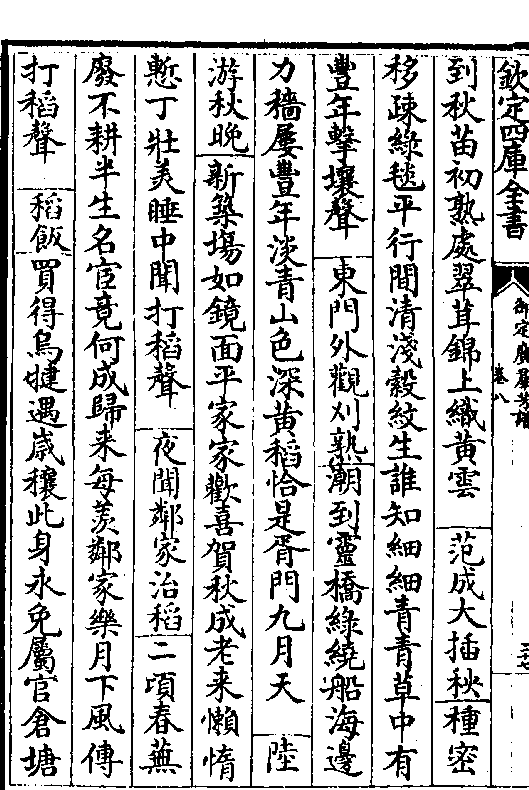 欽定四庫全書
御定廣羣芳譜
卷八
到秋苗初熟處翠茸錦上織黃雲 范成大插秧種密
移疎綠毯平行間清淺縠紋生誰知細細青青草中有
豐年擊壤聲 東門外觀刈熟潮到靈橋綠繞船海邊
力穡屢豐年淡青山色深黃稻恰是胥門九月天 陸
游秋晚新築場如鏡面平家家歡喜賀秋成老来懶惰
慙丁壯羙睡中聞打稻聲 夜聞鄰家治稻二頃春蕪
廢不耕半生名宦竟何成歸来每羨鄰家樂月下風傳
打稻聲 稻飯買得烏犍遇歲穰此身永免屬官倉塘